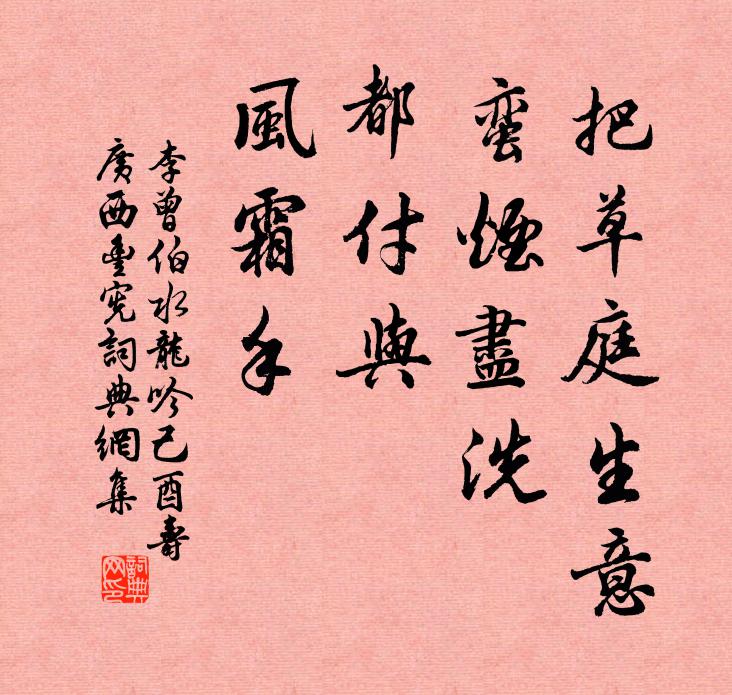 把草庭生意
蛮煙盡洗
都付與
風霜手
李曾伯水龍吟己酉壽
廣西豊宪詞典網集
詞典网印